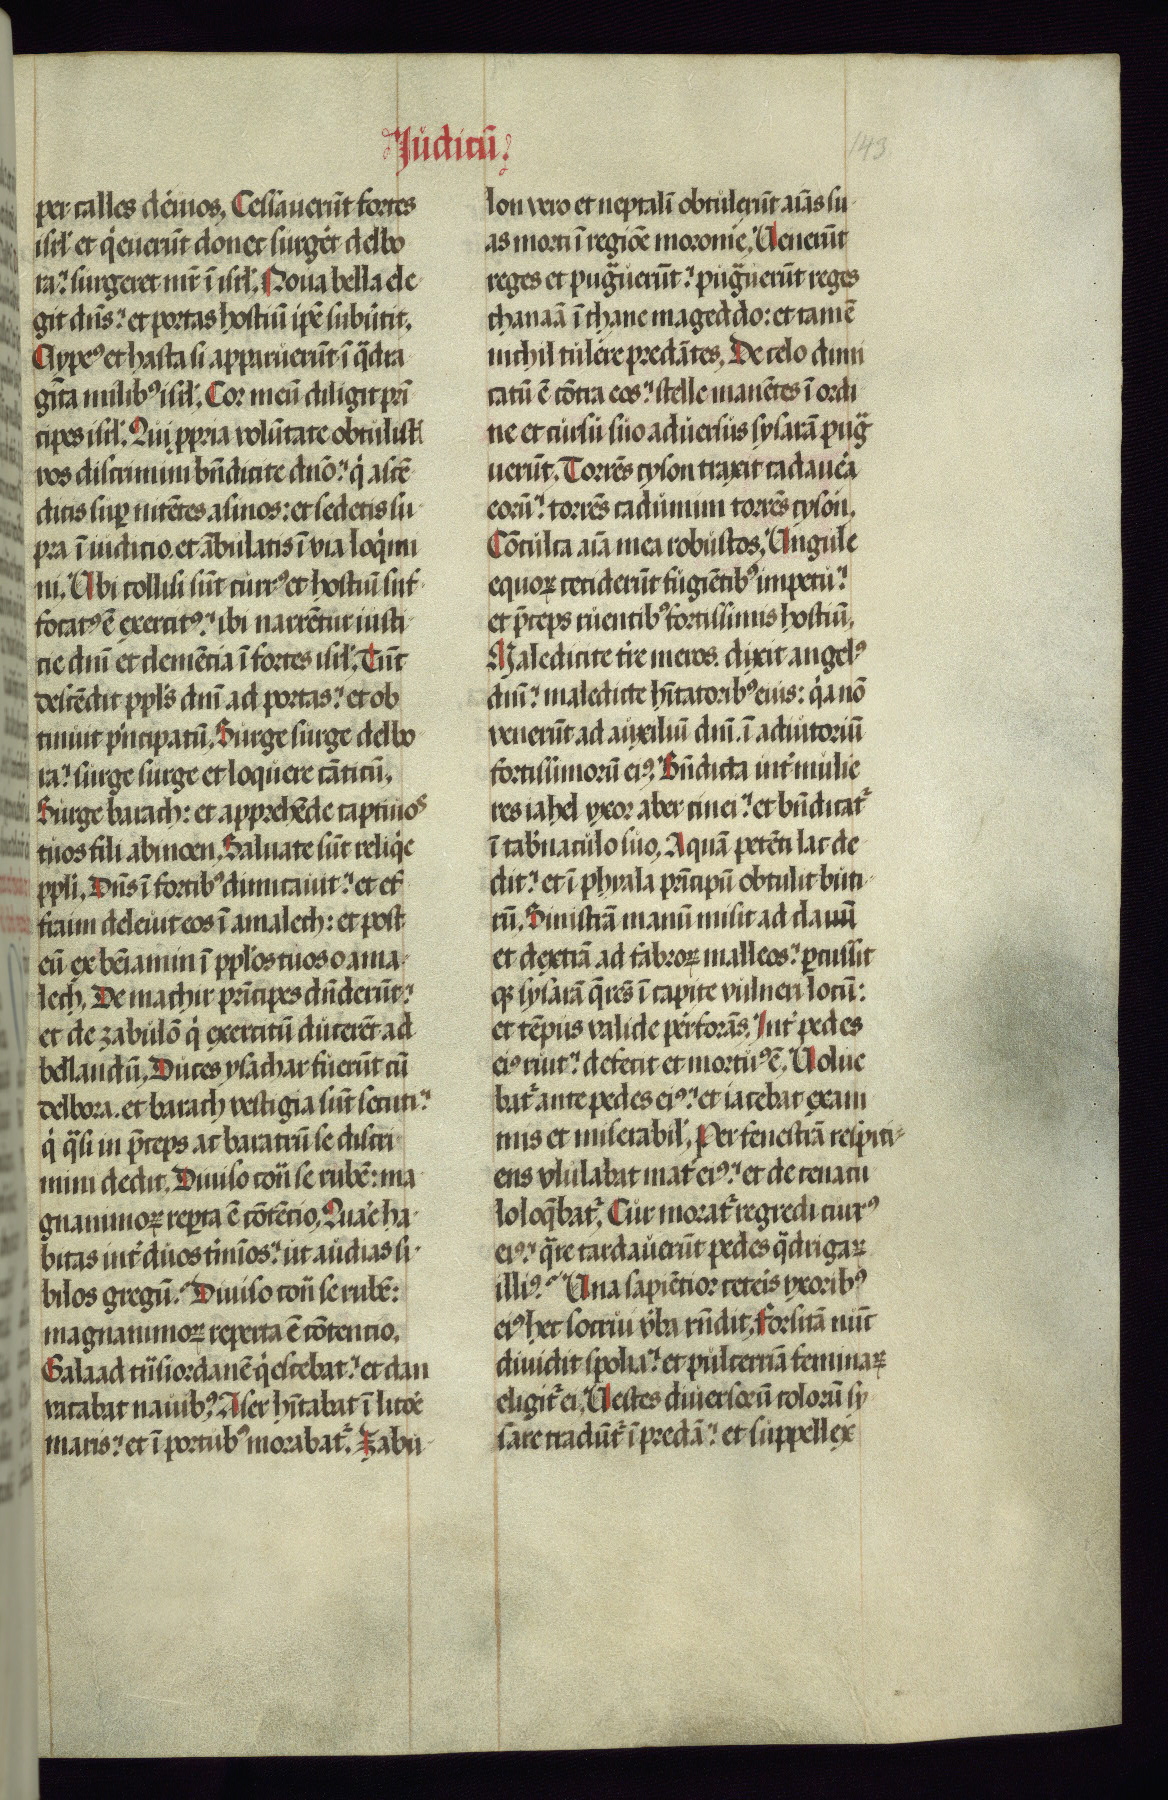 Judicũ.
143
per calles deuios. Cessauerũt fortes
isrl' et q'euerũt donec surg'et delbo
ra: surgeret mr̃ ĩ isrl'. Noua bella ele
git dñs: et portas hostiũ ip̃e subũtit.
Clype9 et hasta si apparuerũt ĩ q̃dra
gĩta milib9 isrl'. Cor meũ diligit prĩ
cipes isrl'. Qui ppria volũtate obtulist'
vos discrimini bñdicite dño: q' ascẽ
ditis sup nitẽtes asinos: et sedetis su
pra ĩ iudicio. et ãbulatis ĩ via loq'mi
ni. Vbi collisi sũt curr9 et hostiũ suf
focat9 ẽ exercit9: ibi narrẽtur iusti
cie dñi et clemẽcia ĩ fortes isrl'. Tũt
descẽdit ppl's dñi ad portas: et ob
tinuit p'ncipatũ. Surge surge delbo
ra: surge surge et loquere cãticũ.
Surge barach: et apprehẽde captiuos
tuos fili abinoen. Saluate sũt reliq'e
ppli. Dñs ĩ fortib9 dimicauit: et ef
fraim deleuit eos ĩ amalech: et post
eũ ex bẽiamin ĩ ppl'os tuos o ama
lech. De machir prĩcipes dñderũt:
et de zabulõ q' exercitũ ducerẽt ad
bellandũ. Duces ysachar fuerũt cũ
delbora. et barach vestigia sũt secuti:
q' q̃si in p̃ceps ac baratrũ se discri
mini dedit. Diuiso cõt̃ se rubẽ: ma
gnanimoꝝ rep̃ta ẽ cõtẽcio. Quar'e ha
bitas int' duos t'mĩos: ut audias si
bilos gregũ: Diuiso cõt̃ se rubẽ:
magnanimoꝝ reperta ẽ cõtencio.
Galaad tñs iordanẽ q'escebat: et dan
vacabat nauib9. Aser hĩtabat ĩ litor'e
maris: et ĩ portub9 morabat'. Zabu
lon vero et neptalĩ obtulerũt aĩas su
as morti ĩ regiõe moronie. Venerũt
reges et pug̃uerũt: pug̃uerũt reges
chanaã ĩ thane mageddo: et tamẽ
nichil tuler'e predãtes. De celo dimi
catũ ẽ cõtra eos: stelle manẽtes ĩ ordi
ne et cursu suo aduersus sysarã pug̃
uerũt. Torrẽs cyson traxit cadauer'a
eorũ: torrẽs cadumim torrẽs cyson.
Cõculca aĩa mea robustos. Vngule
equoꝝ ceciderũt fugiẽtib9 impetu:
et p̃ceps ruentib9 fortissimis hostiũ.
Maledicite t're meros. dixit angel9
dñi: maledicite hĩtatorib9 eius: q'a nõ
venerũt ad auxiliũ dñi. ĩ adiutoriũ
fortissimorũ ei9. Bñdicta int' mulie
res iahel vxor aber cinei: et bñdicat'
ĩ tab'naculo suo. Aquã petẽti lac de
dit: et ĩ phyala prĩcipũ obtulit buti
rũ. Sinistrã manũ misit ad clauũ
et dextrã ad fabroꝝ malleos: p̃cussit
qꝫ sysarã q̃rẽs ĩ capite vulneri locũ:
et tẽpus valide perforãs. Int' pedes
ei9 ruit: defecit et mortu9 ẽ. Volue
bat' ante pedes ei9: et iacebat exani
mis et miserabil'. Per fenestrã respici
ens vlulabat mat' ei9: et de cenacu
lo loq̃bat'. Cur morat' regredi curr9
ei9: q̃re tardauerũt pedes q̃drigaꝝ
illi9: Vna sapiẽcior ceteris vxorib9
ei9 hec socrui v'ba rñdit. Forsitã nũt
diuidit spolia: et pulcerrima feminaꝝ
eligit' ei. Vestes diuersorũ colorũ sy
sare tradũt' ĩ predã: et suppellex